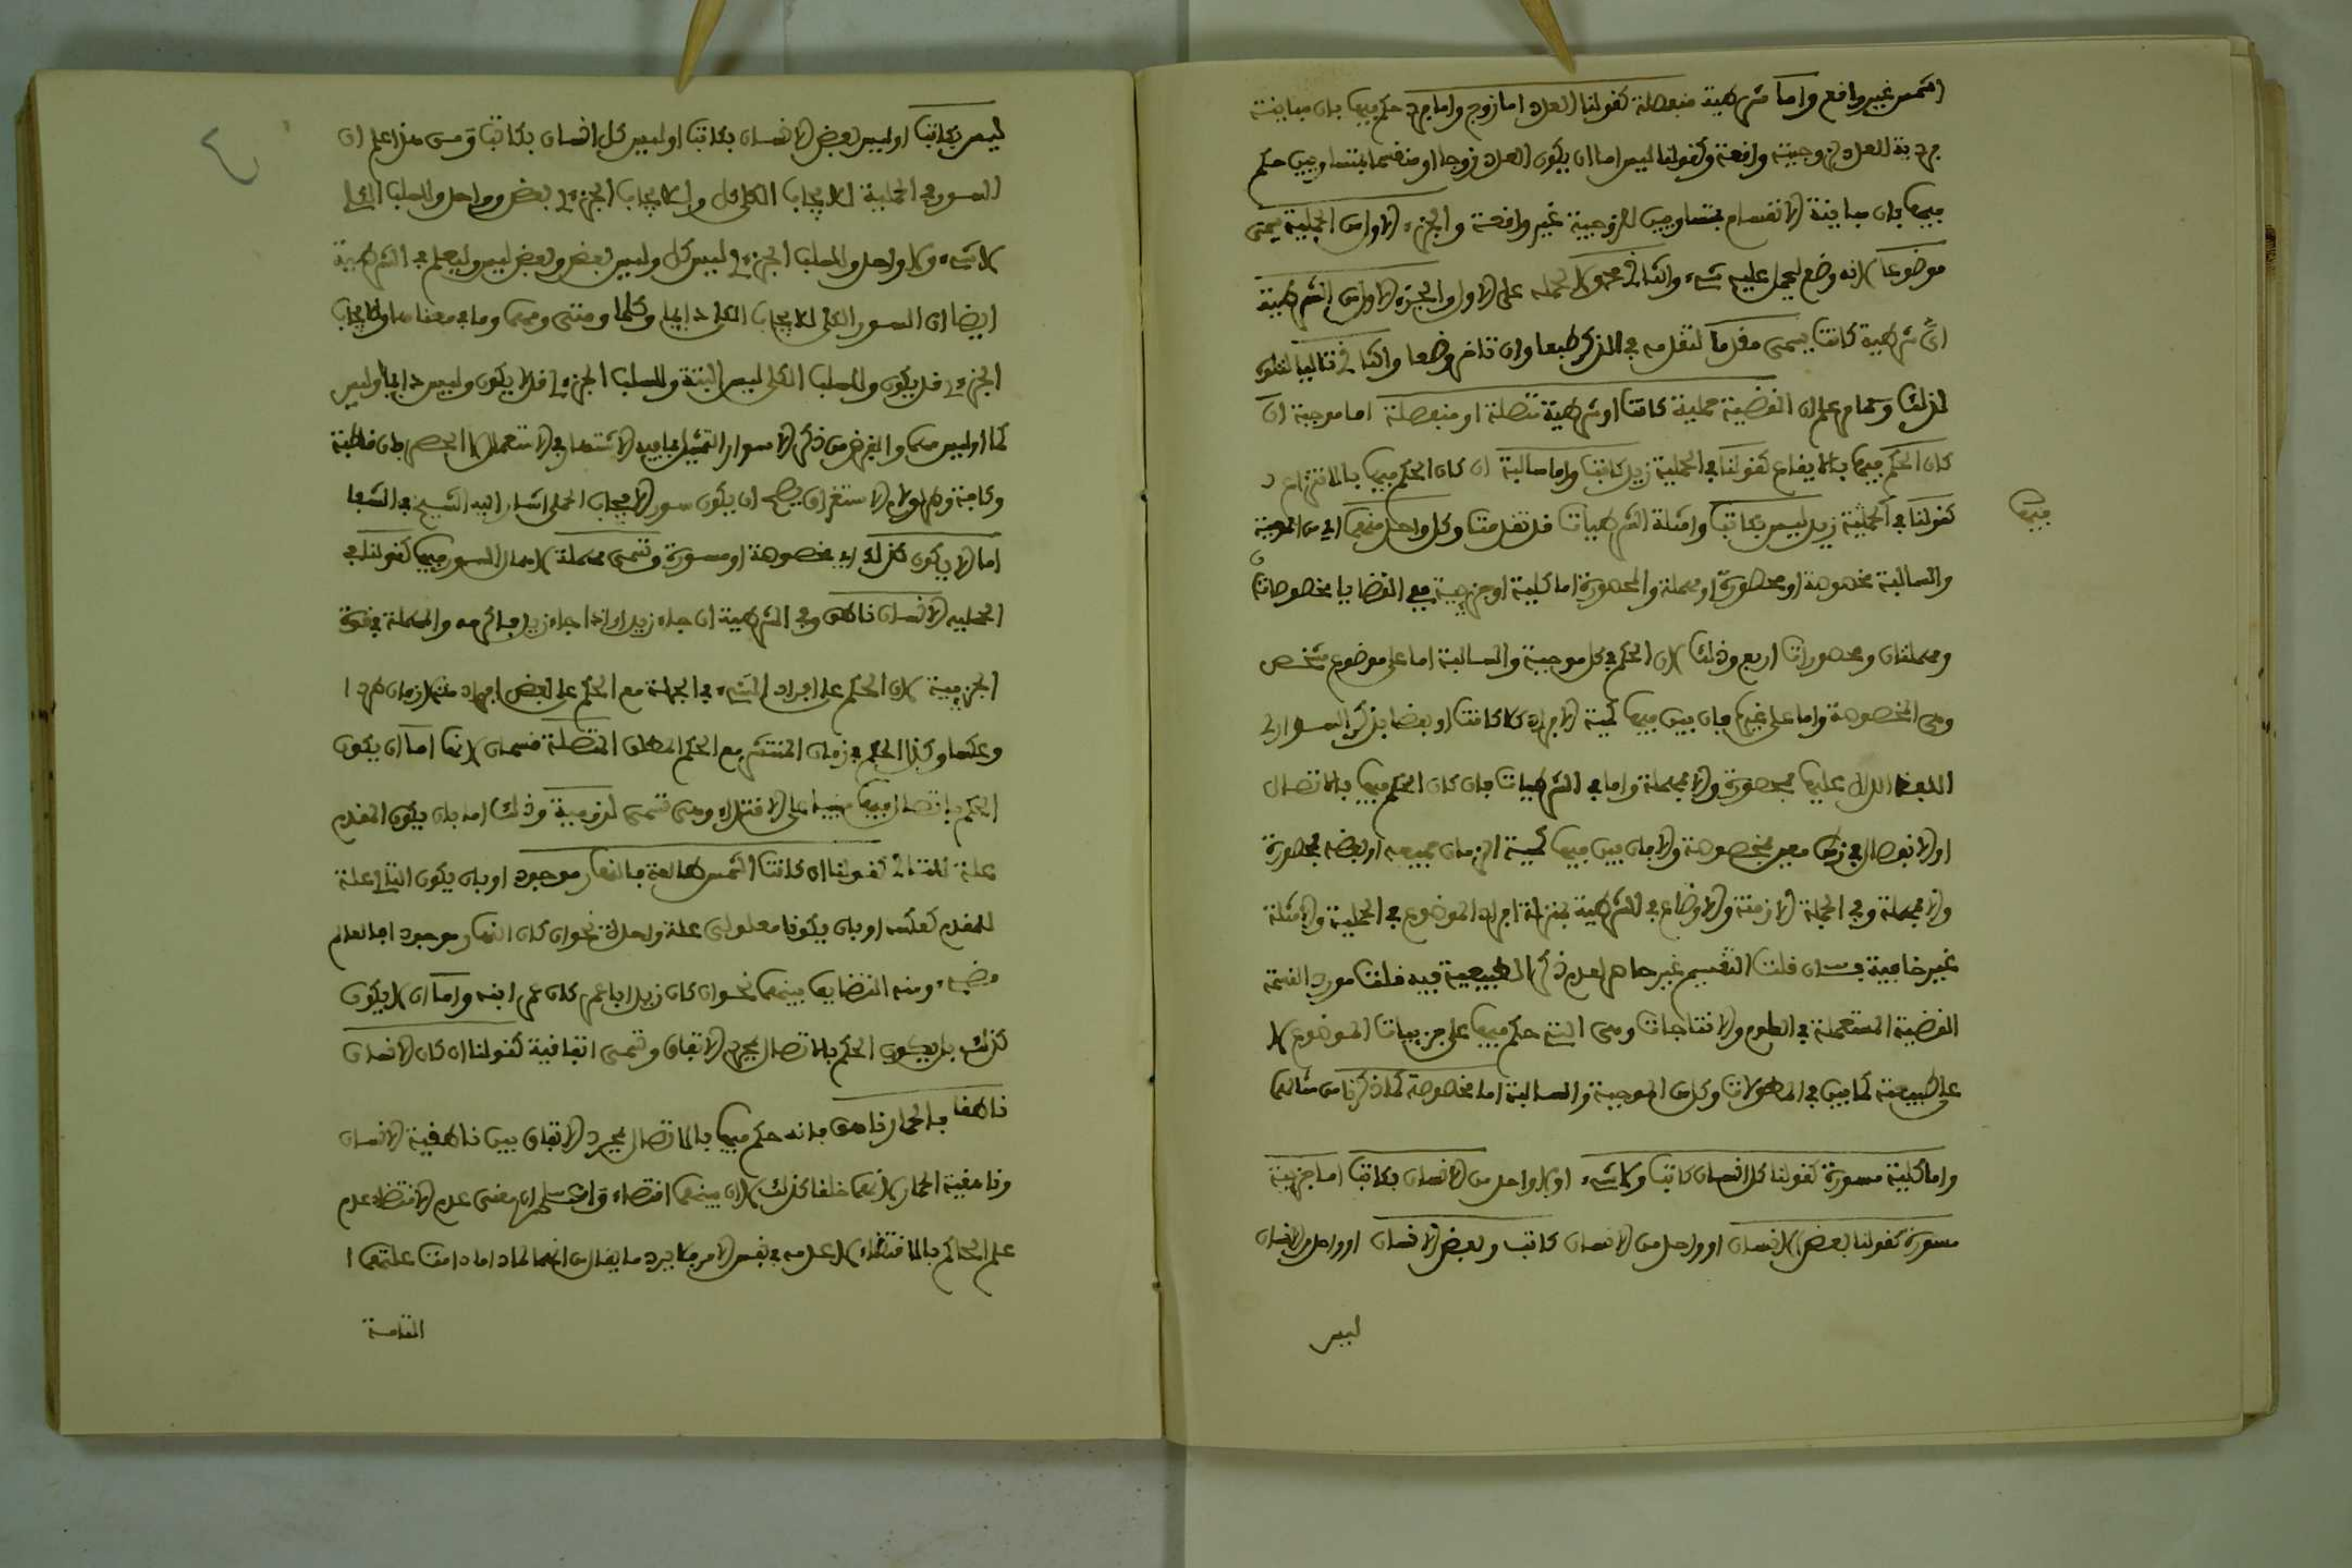 الشمس غير واقع واما شرطية منفصلة كقولنا العدد اما زوج واما فرد حكم فيها بان مباينة
فردية العدد لزوجيته واقعة وكقولنا ليس اما ان يكون العدد زوجا او منقسما بمتساويين حكم
فيها بان مباينة الانقسام بمتساويين للزوجية غير واقعة والجزء الاول من الحملية يسمى
موضوعا لانه وضع ليحمل عليه شيء والثاني محمولا لحمله على الاول والجزء الاول من الشرطية
اي شرطية كانت يسمى مقدما لتقدمه في الذكر طبعا وان تاخر وضعا والثاني تاليا لتلوه
لذلك وتمام علم ان القضية حملية كانت او شرطية متصلة او منفصلة اما موجبة ان
كان الحكم فيها بالايقاع كقولنا في الحملية زيد كاتب واما سالبة ان كان الحكم فيها بالانتزاع
كقولنا في الحملية زيد ليس بكاتب وامثلة الشرطيات قد تقدمت وكل واحد منهما اي من الموجبة
فيها
والسالبة مخصوصة او محصورة او مهملة والمحصورة اما كلية او جزئية فهي القضايا مخصوصتان
ومهملتان ومحصورات اربع وذلك لان الحكم في كل موجبة والسالبة اما على موضوع مشخص
وهي المخصوصة واما على غيره فان بين فيها كمية الافراد كلا كانت او بعضا بذكر السور اي
اللفظ الدال عليها فمحصورة والا فمهملة واما في الشرطيات فان كان الحكم فيها بالاتصال
او الانفصال في زمن معين فمخصوصة والا فان بين فيها كمية الزمان جميعه او بعضه فمحصورة
والا فمهملة وفي الجملة الازمنة والاوضاع في الشرطية بمنزلة افراد الموضوع في الحملية والامثلة
غير خافية فان قلت التقسيم غير حاصر لعدم ذكر الطبيعية فيه قلت مورد القسمة
القضية المستعملة في العلوم والانتاجات وهي التي حكم فيها على جزييات الموضوع لا
على طبيعته كما بين في المطولات وكل من الموجبة والسالبة اما مخصوصة كما ذكرنا من مثالهما
واما كلية مسورة كقولنا كل انسان كاتب ولا شيء او لا واحد من الانسان بكاتب اما جزئية
مسورة كقولنا بعض الانسان او واحد من الانسان كاتب وبعض الانسان او واحد من الانسان
ليس
ليس بكاتب او ليس بعض الانسان بكاتب او ليس كل انسان بكاتب ومن هذا علم ان
السور في الحملية للايجاب الكلي كل وللايجاب الجزءي بعض وواحد وللسلب الكلي
لا شيء ولا واحد وللسلب الجزءي ليس كل وليس بعض وبعض ليس وليعلم في الشرطية
ايضا ان السور الكلي للايجاب الكلي دايما وكلما ومتى ومهما وما في معناها وللايجاب
الجزءي قد يكون وللسلب الكلي ليس البتة وللسلب الجزءي قد لا يكون وليس دايما وليس
كلما وليس مهما والغرض من ذكر الاسوار التمثيل بما فيه الاشتهار في الاستعمال لا الحصر فان قاطبة
وكافة وطرا ولام الاستغراق يصح ان يكون سور الايجاب الكلي اشار اليه الشيخ في الشفا
اما الا يكون كذلك اي مخصوصة او مسورة وتسمى مهملة لاهمال السور فيها كقولنا في
الحملية الانسان ناطق وفي الشرطية ان جاء زيد او اذا جاء زيد فاكرمه والمهملة في قوة
الجزءية لان الحكم على افراد الشيء في الجملة مع الحكم على بعض افراده متلازمان طردا
وعكسا وكذا الحكم في زمان المنتشر مع الحكم المطلق المتصلة قسمان لانها اما ان يكون
الحكم باتصال فيها مبنيا على الاقتضاء وهي تسمى لزومية وذلك اما بان يكون المقدم
علة للتالي كقولنا ان كانت الشمس طالعة فالنهار موجود او بان يكون التالي علة
للمقدم كعكسه او بان يكونا معلولي علة واحدة نحو ان كان النهار موجود افالعالم
مضيء ومنه التضايف بينهما نحو ان كان زيد ابا عمر كان عمر ابنه واما ان لا يكون
كذلك بل يكون الحكم بالاتصال لمجرد الاتفاق وتسمى اتفاقية كقولنا ان كان الانسان
ناطقا فالحمار ناهق فانه حكم فيها بالاتصال لمجرد الاتفاق بين ناطقية الانسان
وناهقية الحمار لانهما خلقا كذلك لا ان بينهما اقتضاء معنى عدم الاقتضاء عدم
علم الحاكم بالاقتضاء لا عدمه في نفس الامر فلا يرد ما يقال من انهما لما دامت علتهما
التامة